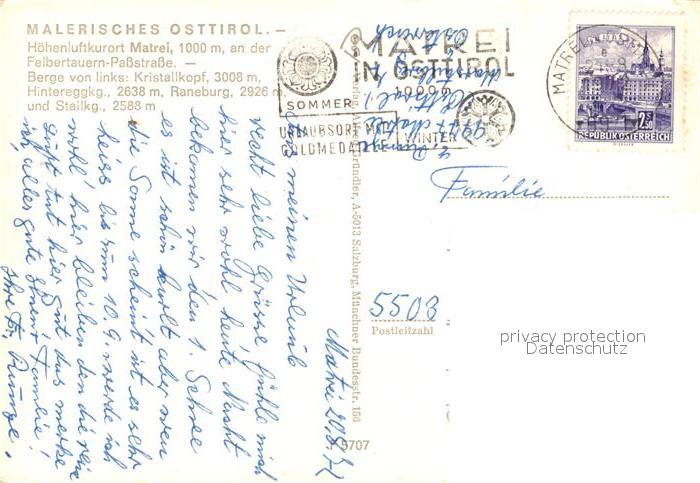 MALERISCHES OSTTIROL. —
Höhenluftkurort Matrei, 1000 m, an der
Felbertauern-Paßstraße. —
Berge von links: Kristallkopf, 3008 m,
Hintereggkg., 2638 m, Raneburg, 2926 m,
und Stallkg., 2588 m
MATREI
IN OSTTIROL
1000 m
SOMMER
WINTER
URLAUBSORT MIT
GOLDMEDAILLE
MATREI
2,50
REPUBLIK ÖSTERREICH
Familie
5503
Postleitzahl
Gründler, A-5013 Salzburg, Münchner Bundesstr. 156
5707
Matrei 20.8.
meinen Urlaub
recht liebe Grüsse fühle mich
hier sehr wohl heute Nacht
bekamen wir den 1. Schnee
es ist schön kalt aber wen
die Sonne scheint ist es sehr
heiss bis zum 10.9. werde ich
wohl hier bleiben den die reine
Luft tut hier gut das merke
ich alles gute Ihnen Familie!
Ihre Fr. Runge.
9971 Matrei
Osttirol
Österreich
privacy protection
Datenschutz